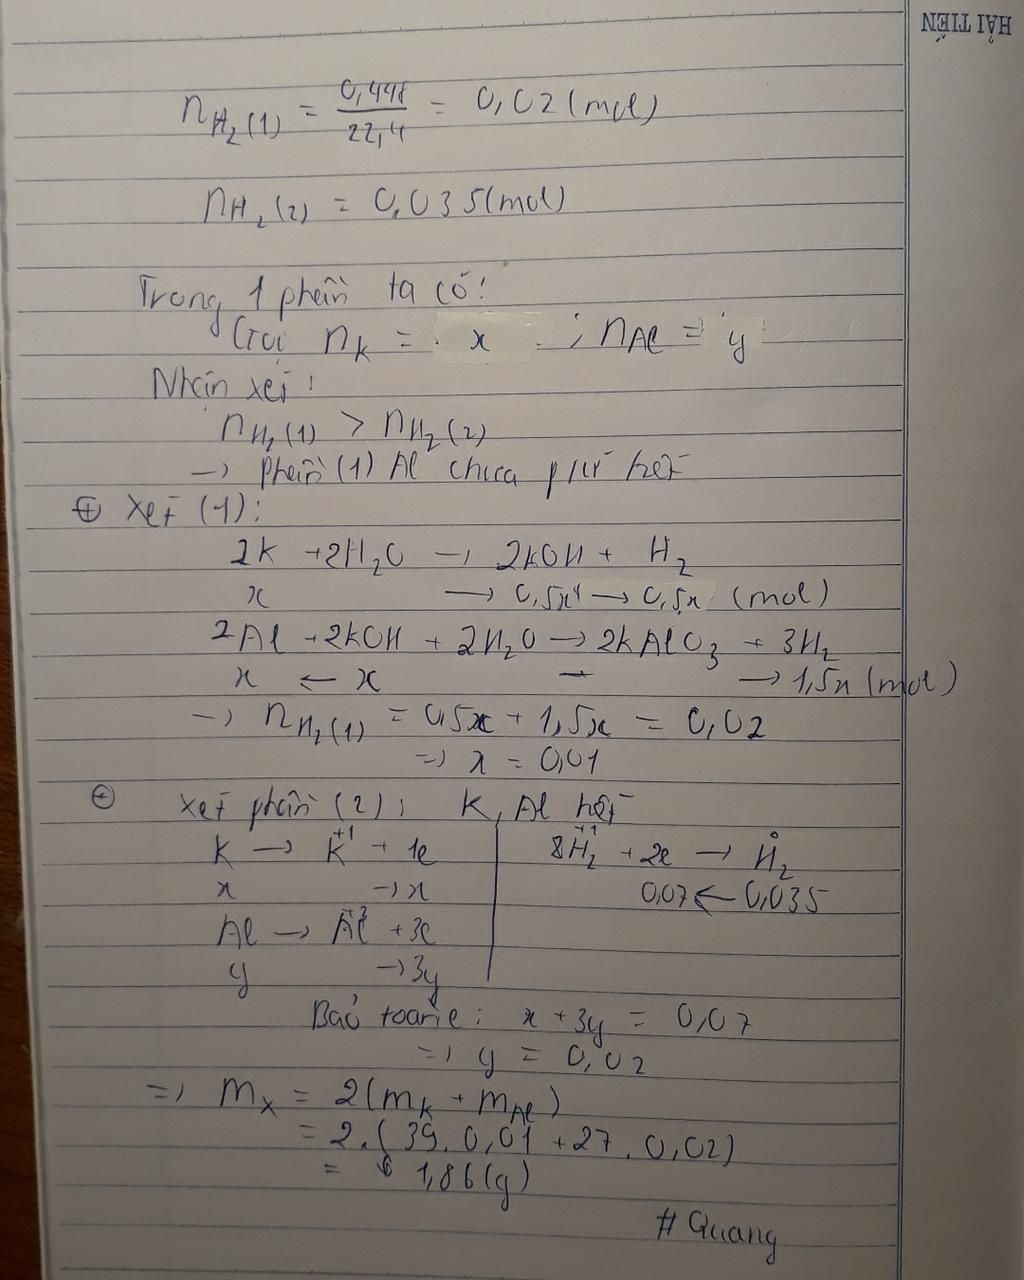 HẢI TIẾN
n_H₂ (1) = 0,448/22,4 = 0,02 (mol)
n_H₂ (2) = 0,035 (mol)
Trong 1 phần ta có:
Gọi n_K = x ; n_Al = y
Nhận xét:
n_H₂ (1) > n_H₂ (2)
→ phần (1) Al chưa pứ hết
⊕ Xét (1):
2K + 2H₂O → 2KOH + H₂
x → 0,5x → 0,5x (mol)
2Al + 2KOH + 2H₂O → 2KAlO₃ + 3H₂
x ← x → 1,5x (mol)
→ n_H₂ (1) = 0,5x + 1,5x = 0,02
=> x = 0,01
⊕ xét phần (2): K, Al hết
K → K⁺¹ + 1e | 2H₂⁺¹ + 2e → H₂⁰
x → x | 0,07 ← 0,035
Al → Al⁺³ + 3e
y → 3y
Bảo toàn e: x + 3y = 0,07
=> y = 0,02
=> m_X = 2(m_K + m_Al)
= 2.(39.0,01 + 27.0,02)
= 1,86 (g)
# Quang